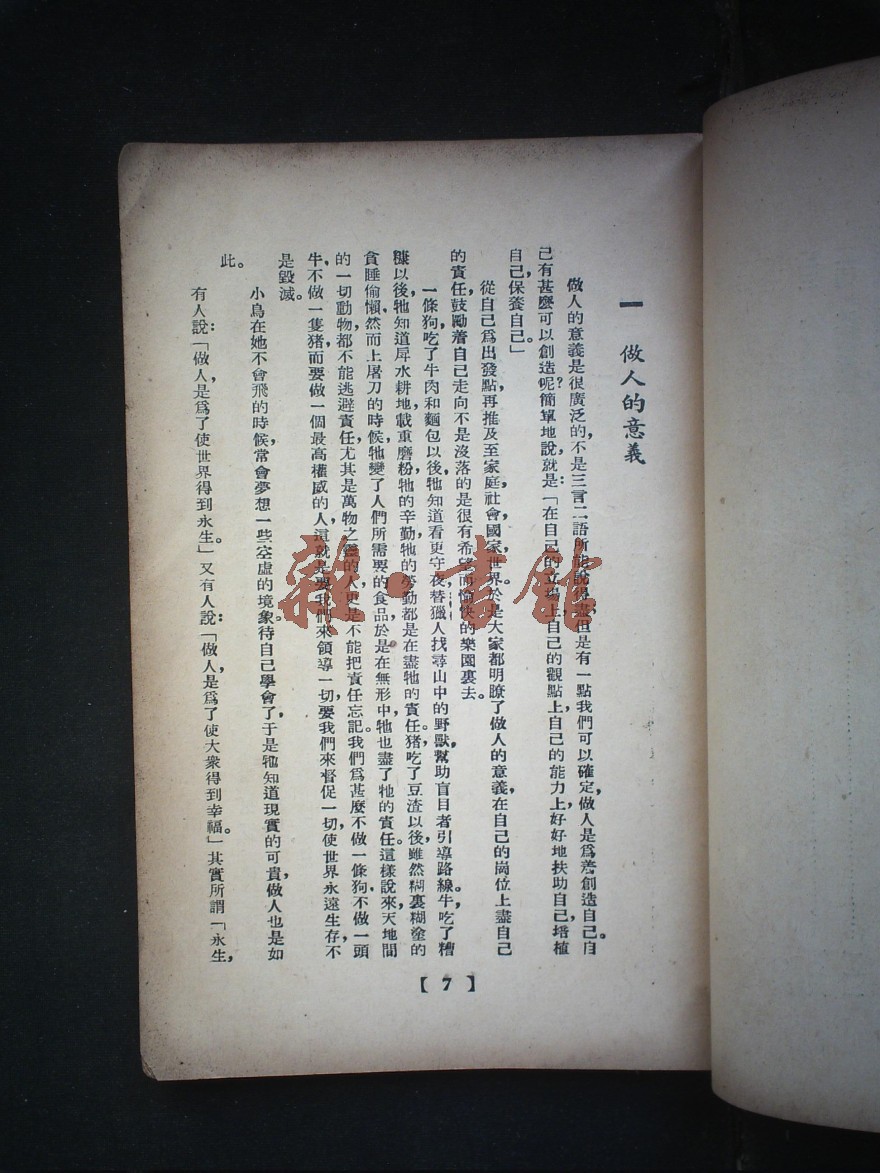 一 做人的意義
做人的意義是很廣泛的，不是三言二語所能說得盡，但是有一點我們可以確定，做人是爲着創造自己。自
己有甚麽可以創造呢？簡單地說，就是：「在自己的立場上，自己的觀點上，自己的能力上，好好地扶助自己，培植
自己，保養自己。」
從自己爲出發點，再推及至家庭，社會，國家，世界。於是大家都明瞭了做人的意義，在自己的崗位上盡自己
的責任，鼓勵着自己走向不是沒落的是很有希望而愉快的樂園裏去。
一條狗吃了牛肉和麵包以後，牠知道看更守夜，替獵人找尋山中的野獸，幫助盲目者引導路線。牛吃了糟
糠以後，牠知道犀水耕地，載重磨粉，牠的辛勤，牠的勞動，都是在盡牠的責任。猪吃了豆渣以後，雖然糊裏糊塗的
貪睡偷懶，然而上屠刀的時候，牠變了人們所需要的食品，於是在無形中，牠也盡了牠的責任。這樣說來，天地間
的一切動物都不能逃避責任，尤其是萬物之靈的人，更是不能把責任忘記。我們爲甚麽不做一條狗，不做一頭
牛，不做一隻猪，而要做一個最高權威的人，這就是要我們來領導一切，要我們來督促一切，使世界永遠生存，不
是毀滅。
小鳥在她不會飛的時候，常會夢想一些空虛的境象。待自己學會了，于是牠知道現實的可貴，做人也是如
此。
有人說：「做人，是爲了使世界得到永生。」又有人說：「做人，是爲了使大衆得到幸福。」其實所謂「永生，
【7】
雜·書館